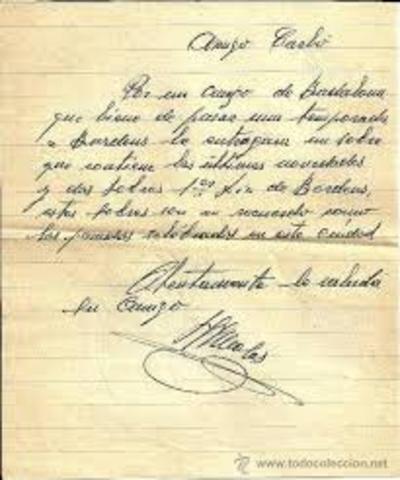 Amigo Carbó
Por un amigo de Badalona
que biene de pasar una temporada
a Burdeus le entregara un sobre
que contiene las ultimas novedades
y dos sobres 1er dia de Bordeus,
estos sobres son un recuerdo como
los famosos celebrados en esta ciudad
Atentamente le saluda
su amigo
www.todocoleccion.net